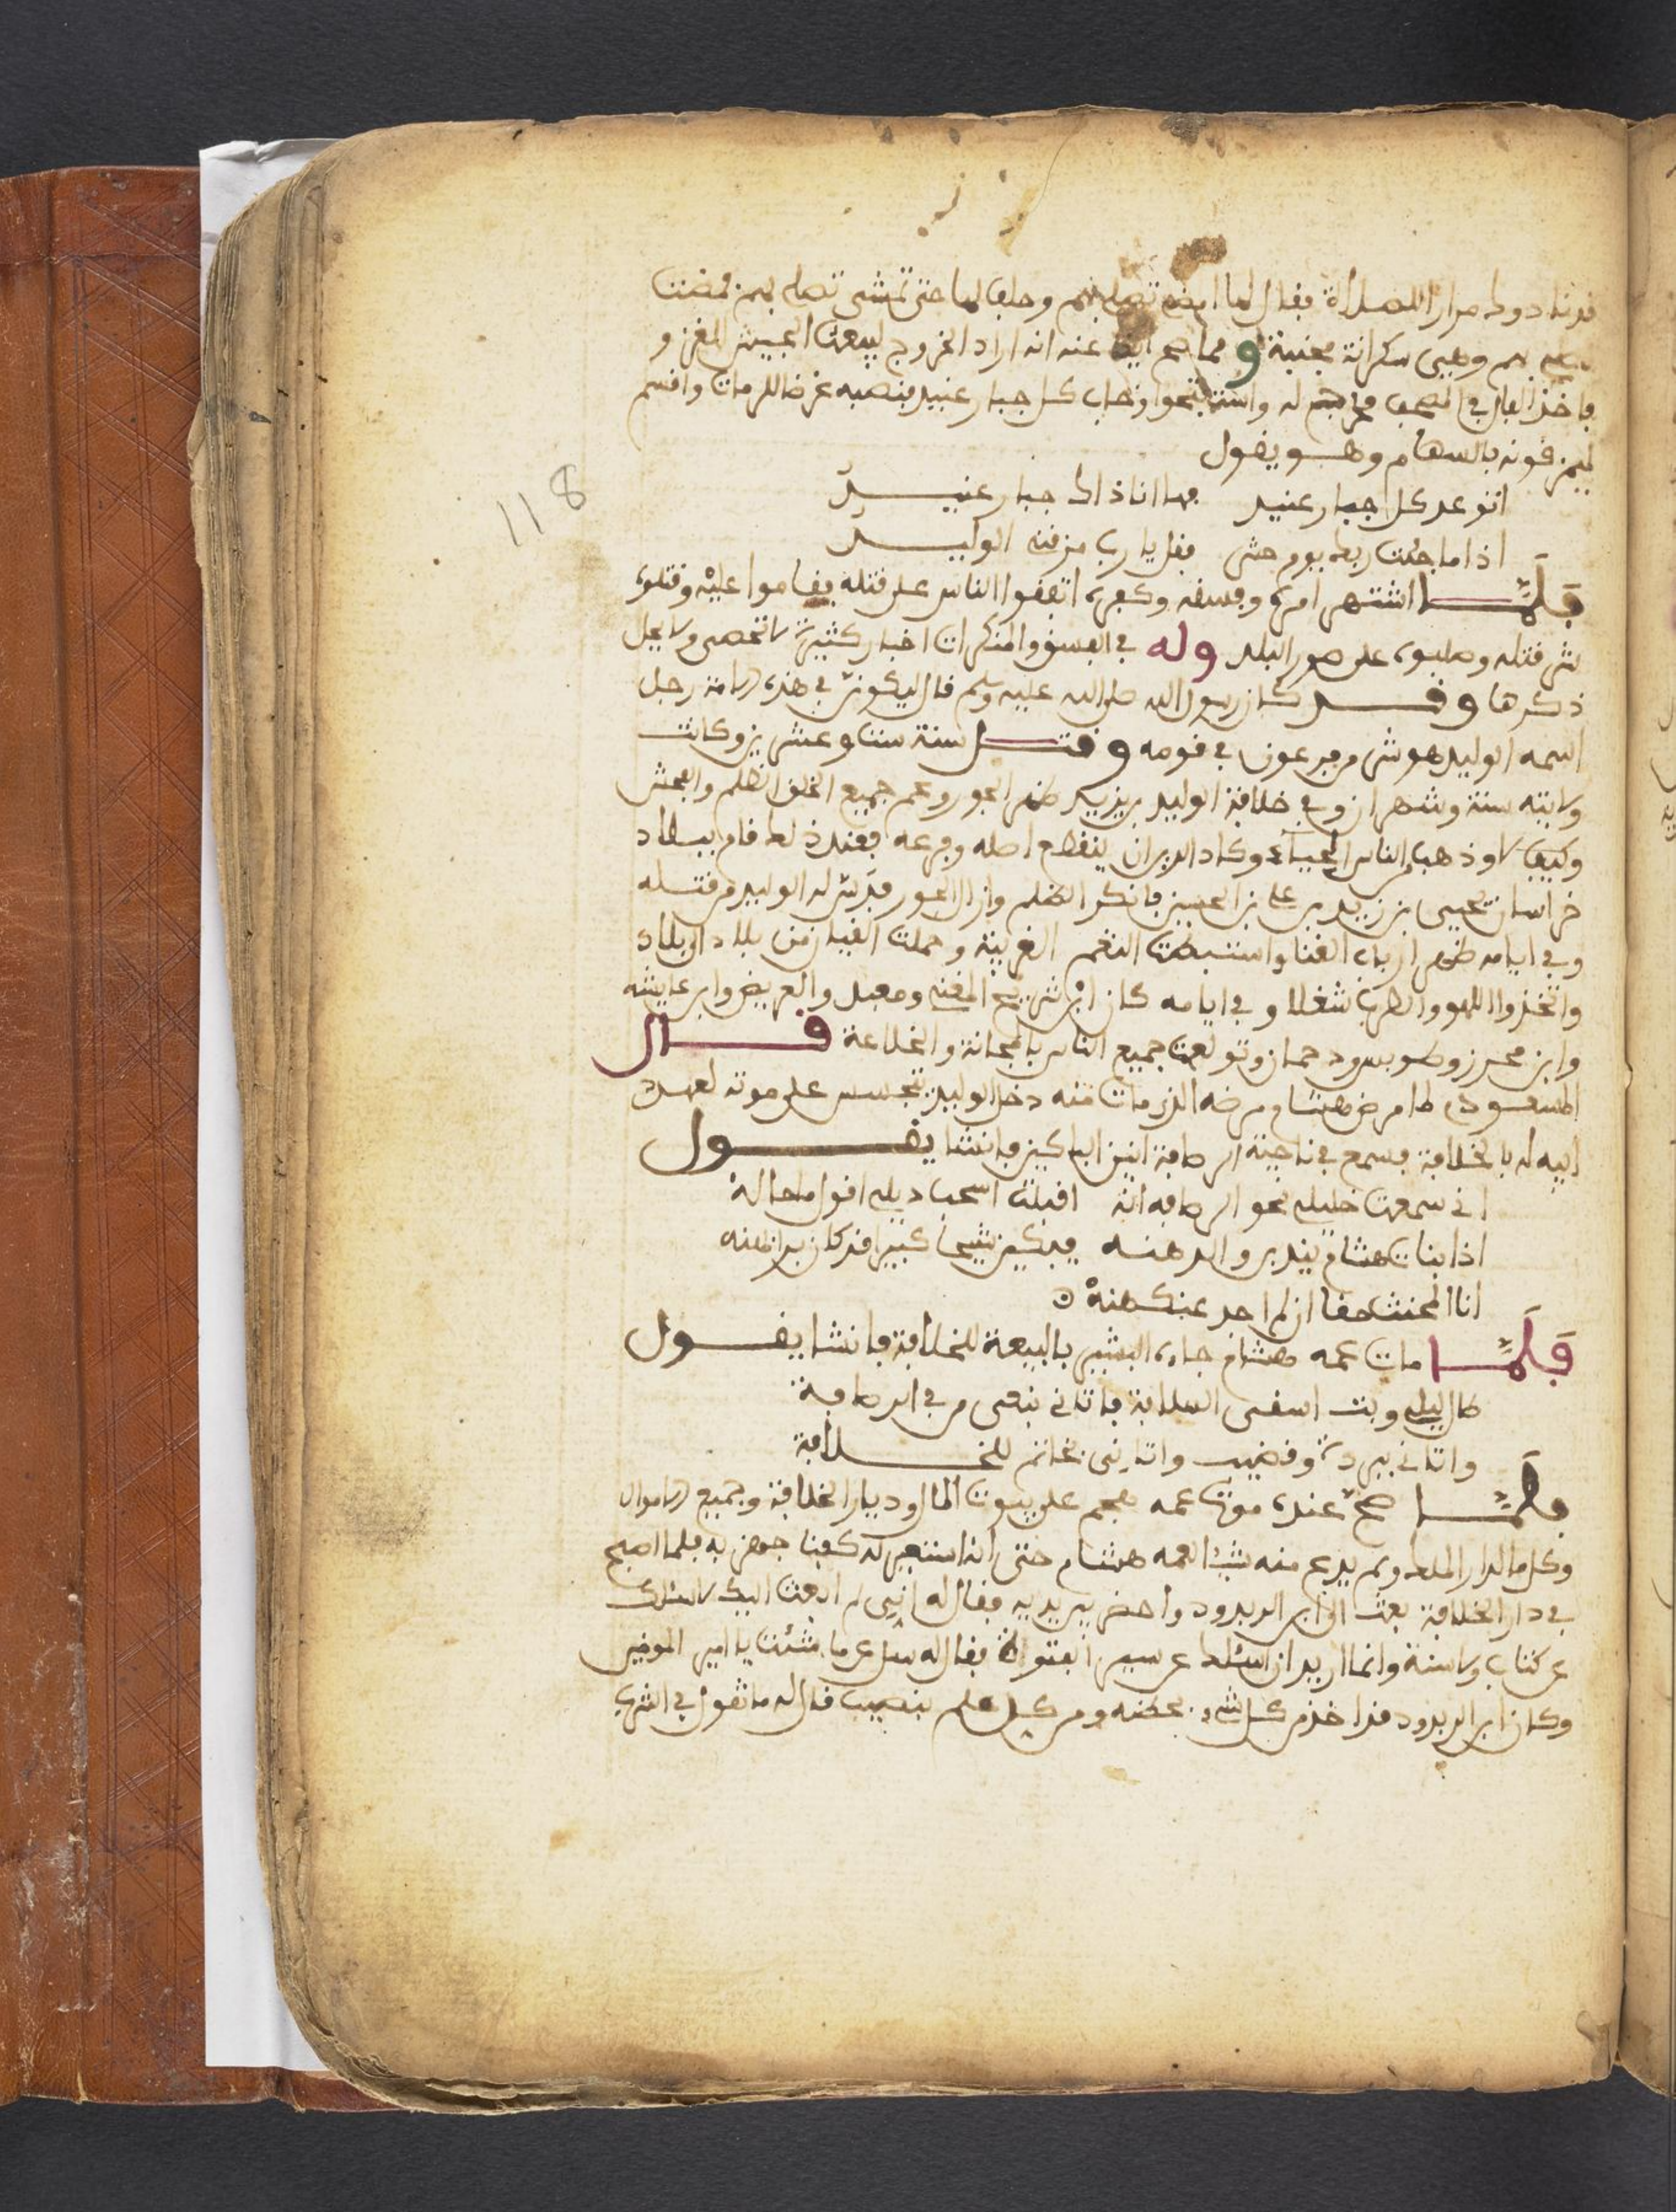 فقال لها امضى تصلى بهم وحلف لها حتى تمشى تصلى بهم فمضت
بهم وهي سكرانة مجنبة ومما صح ايضا عنه انه اراد الخروج ليبعث الجيش للغزو
فاخذ الفال في المصحف فخرج له واستفتحوا وخاب كل جبار عنيد فنصبه غرضا للرماة واقسم
ليمزقونه بالسهام وهو يقول
اتوعد كل جبار عنيد فها انا ذاك جبار عنيد
اذا ما جئت ربك يوم حشر فقل يا رب مزقنى الوليد
فلما اشتهر امره وفسقه وكفره اتفقوا الناس على قتله فقاموا عليه وقتلوه
شر قتله وصلبوه على صور البلد وله في الفسق والمنكرات اخبار كثيرة لا تحصى ولا يحل
ذكرها وقد كان رسول الله صلى الله عليه وسلم قال ليكونن في هذه الامة رجل
اسمه الوليد هو شر من فرعون في قومه وقتل سنة ست وعشرين وكانت
ولايته سنة وشهران وفي خلافة الوليد بن يزيد ظهر الجور وعم جميع الخلق الظلم والفحش
وكيف لا وذهب من الناس الحياء وكاد الدين ان ينقطع اصله وفرعه فعند ذلك قام ببلاد
خراسان يحيى بن زيد بن على بن الحسين فانكر الظلم وازال الجور فدس له الوليد من قتله
وفي ايامه ظهر ارباب الغنا واستنبطت النغم الغريبة وحملت القيان من بلاد الى بلاد
واتخذوا اللهو والطرب شغلا وفي ايامه كان ابن شريح المغنى ومعبد والغريض وابن عايشه
وابن محرز وطويس ود حمان وتولعت جميع الناس بالمجانة والخلاعة قال
المسعودي لما مرض هشام مرضه الذي مات منه دخل الوليد يتجسس على موته لعهد
ابيه له بالخلافة فسمع في ناحية الرصافة انين الباكين فانشا يقول
انى سمعت خليلى نحو الرصافه انه اقبلت اسحب ذيلى اقول ما حالهنه
اذا بنات هشام يندبن والدهنه يبكين شيخا كبيرا قد كان يرا لهنه
انا المخنث حقا ان لم احد عنكهنه
فلما مات عمه هشام جاءه البشير بالبيعة للخلافة فانشا يقول
طال ليلي وبت اسقى السلافة فاتانى نعى من في الرصافة
واتانى ببردة وقضيب واتانى بخاتم للخلافة
فلما صح عنده موت عمه هجم على بيوت المال وديار الخلافة وجميع الاموال
وكل ما لدار الملك ولم يدع منه شيئا لعمه هشام حتى انه استعير له كفنا جهز به فلما اصبح
في دار الخلافة بعث الى ابن البردود واحضر بين يديه فقال له انى لم ابعث اليك لاسئلك
عن كتاب ولا سنة وانما اريد ان اسئلك عن سير الفتوة فقال له سل عن ما شئت يا امير المومنين
وكان ابن البردود قد اخذ من كل شيء بحظه ومن كل علم بنصيب قال له ما تقول في الشرب